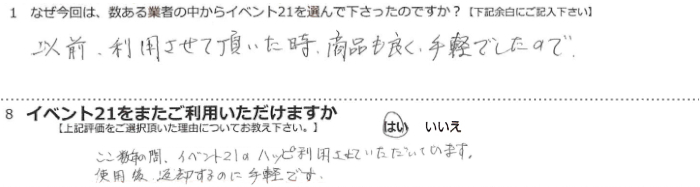 1 なぜ今回は、数ある業者の中からイベント21を選んで下さったのですか?【下記余白にご記入下さい】
以前、利用させて頂いた時、商品も良く、手軽でしたので。
8 イベント21をまたご利用いただけますか
【上記評価をご選択頂いた理由についてお教え下さい。】 はい いいえ
ここ数年の間、イベント21のハッピ利用させていただいています。
使用後、返却するのに手軽です。